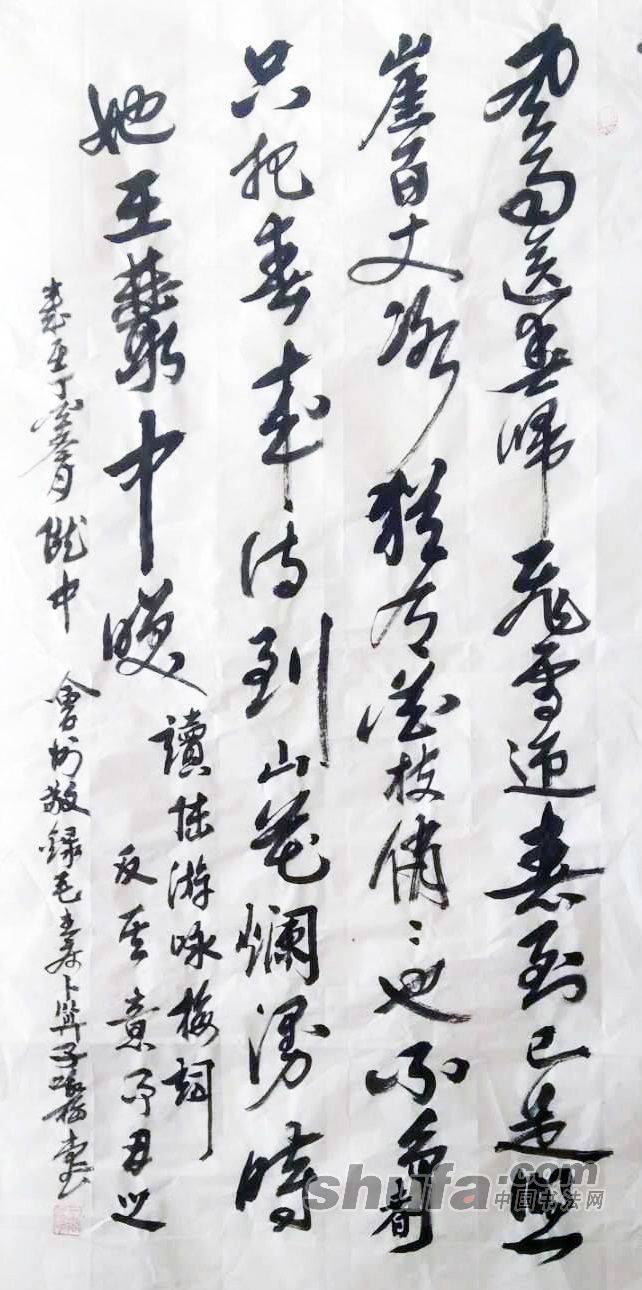 風雨送春歸飛雪迎春到已是懸
崖百丈冰猶有花枝俏〻也不争春
只把春來待到山花爛漫時
她在叢中咲
讀陸游咏梅詞
反其意而用之
歲在丁酉月隴中會州敬録毛主席卜算子咏梅
shufa.com
中国书法网